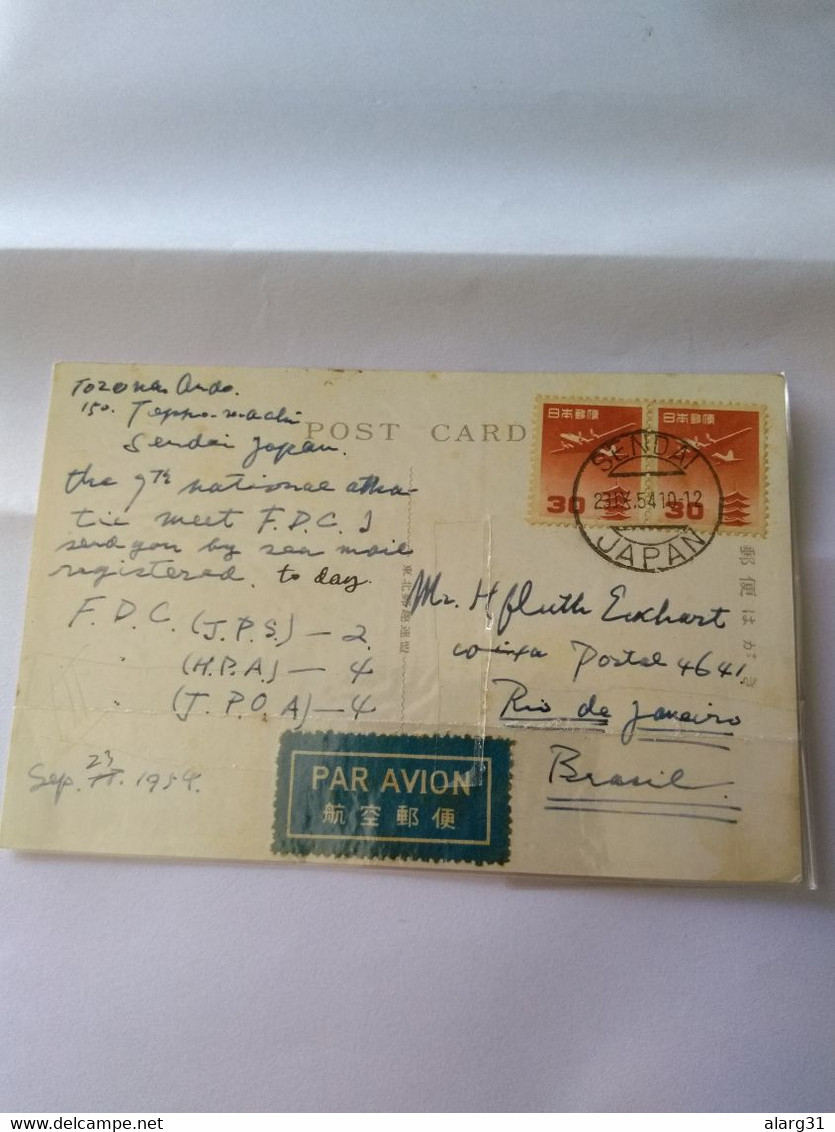 Ando.
150. Teppo-machi
Sendai Japan.
POST CARD
the 9th national athle-
tic meet F.D.C. I
send you by sea mail
registered. to day.
F.D.C. (J.P.S.) — 2
(H.P.A) — 4
(J.P.O A) — 4
23
Sep. 1954.
日本郵便
30
日本郵便
30
SENDAI
23.IX.54.10-12
JAPAN
郵便はがき
Mr. H Eckhart
Postal 4641.
Rio de Janeiro
Brasil.
PAR AVION
航空郵便
alarg31